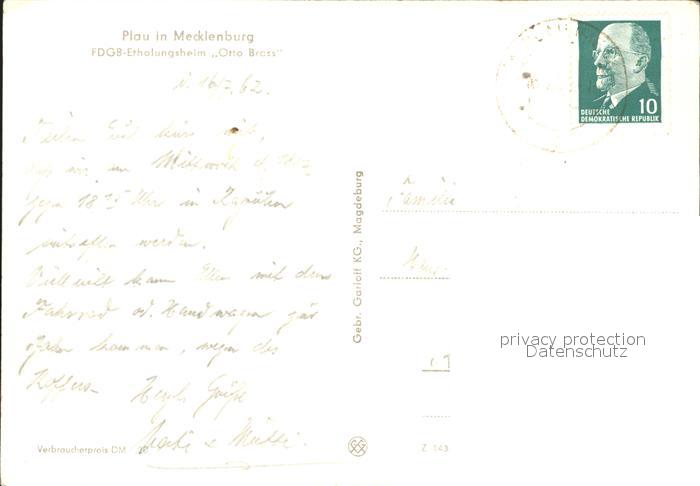 Plau in Mecklenburg
FDGB-Erholungsheim „Otto Brass"
d. 16.7.62.
wir am Mittwoch d. 18.7.
gegen 18 Uhr in
eintreffen werden.
Vielleicht kann Ellen mit dem
Fahrrad od. Handwagen zur
Bahn kommen, wegen des
Koffers. Herzl. Grüße
Vati u. Mutti.
Verbraucherpreis DM
Gebr. Garloff KG., Magdeburg
Z 143
DEUTSCHE 10
DEMOKRATISCHE REPUBLIK
Familie
privacy protection
Datenschutz